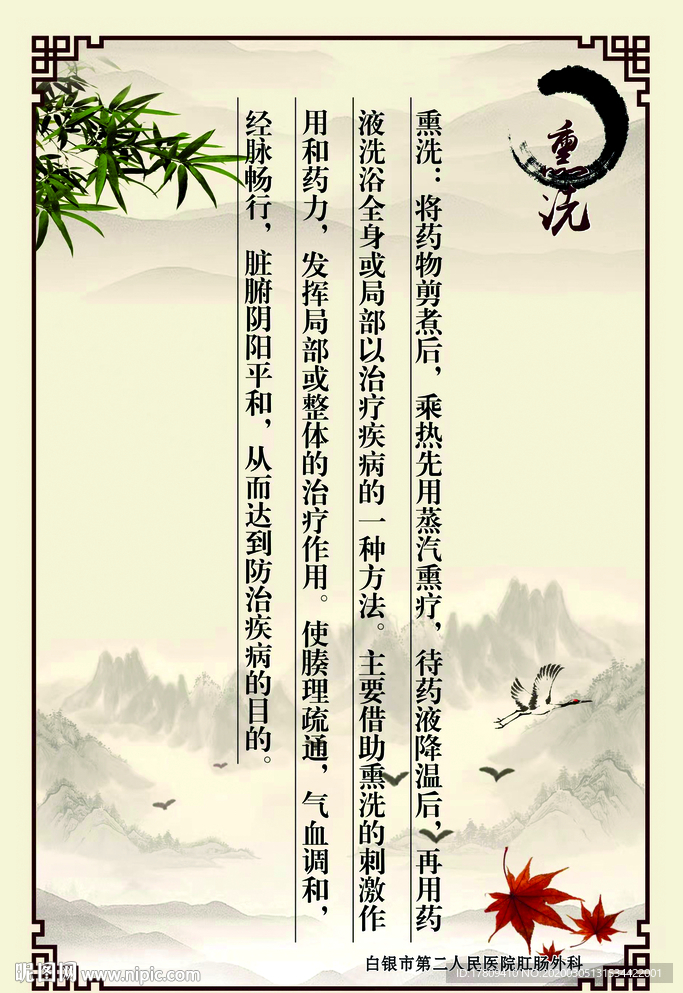 熏洗
熏洗：将药物剪煮后，乘热先用蒸汽熏疗，待药液降温后，再用药
液洗浴全身或局部以治疗疾病的一种方法。主要借助熏洗的刺激作
用和药力，发挥局部或整体的治疗作用。使腠理疏通，气血调和，
经脉畅行，脏腑阴阳平和，从而达到防治疾病的目的。
白银市第二人民医院肛肠外科
昵图网 www.nipic.com
ID:17809410 NO:20200305131534422001